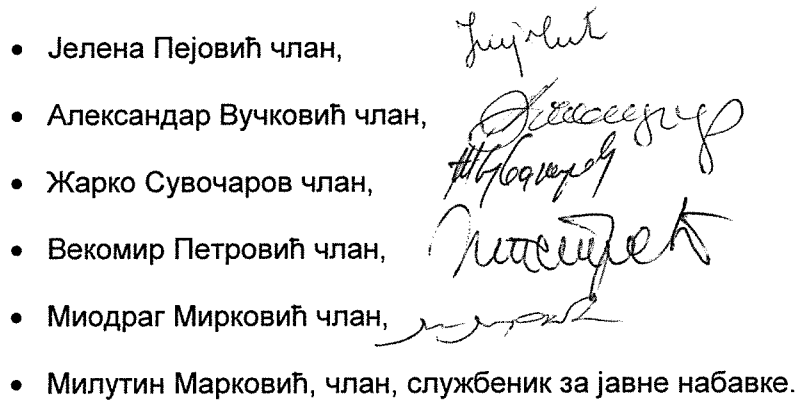 • Јелена Пејовић члан,
• Александар Вучковић члан,
• Жарко Сувочаров члан,
• Векомир Петровић члан,
• Миодраг Мирковић члан,
• Милутин Марковић, члан, службеник за јавне набавке.